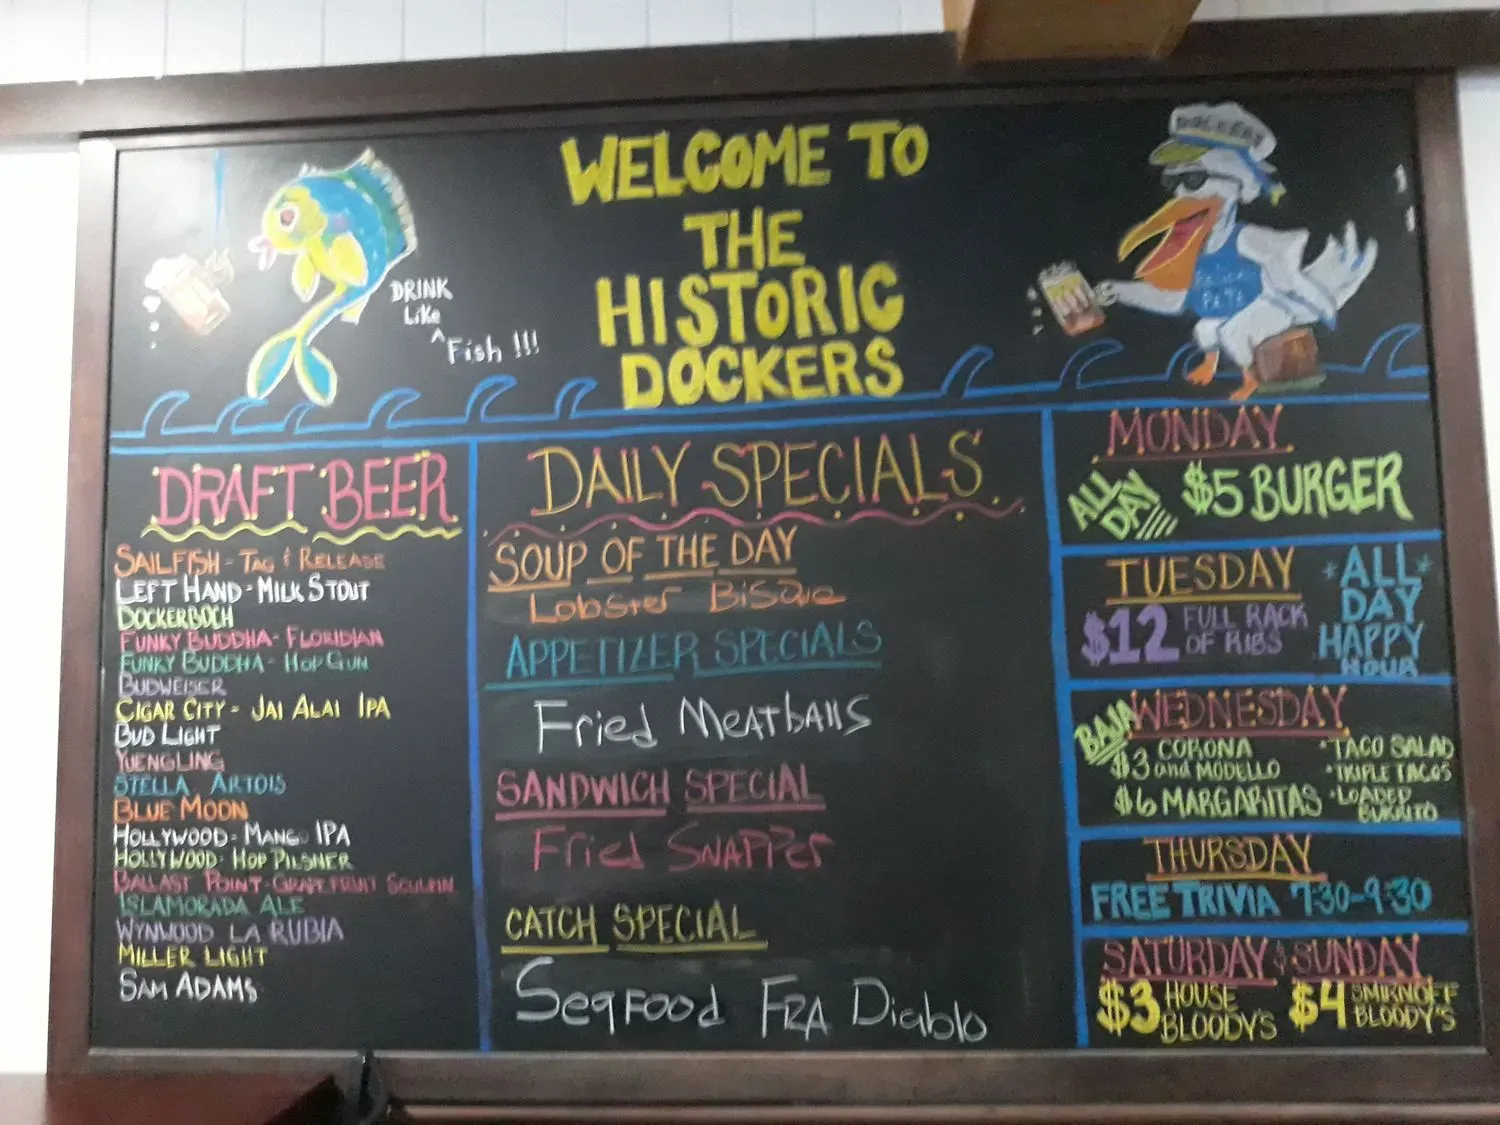 WELCOME TO
THE
HISTORIC
DOCKERS
DRINK
Like
^ Fish !!!
DOCKERS
DRAFT BEER
SAILFISH - TAG & RELEASE
LEFT HAND - MILK STOUT
DOCKERBOCH
FUNKY BUDDHA - FLORIDIAN
FUNKY BUDDHA - HOP GUN
BUDWEISER
CIGAR CITY - JAI ALAI IPA
BUD LIGHT
YUENGLING
STELLA ARTOIS
BLUE MOON
HOLLYWOOD - MANGO IPA
HOLLYWOOD - HOP PILSNER
BALLAST POINT - GRAPEFRUIT SCULPIN
ISLAMORADA ALE
WYNWOOD LA RUBIA
MILLER LIGHT
SAM ADAMS
DAILY SPECIALS
SOUP OF THE DAY
Lobster Bisque
APPETIZER SPECIALS
Fried Meatballs
SANDWICH SPECIAL
Fried SNAPPer
CATCH SPECIAL
SeaFood FRA Diablo
MONDAY
ALL DAY $5 BURGER
TUESDAY
$12 FULL RACK
OF RIBS
*ALL*
DAY
HAPPY
HOUR
BAJA WEDNESDAY
$3 CORONA
and MODELLO
$6 MARGARITAS
• TACO SALAD
• TRIPLE TACOS
• LOADED
BURRITO
THURSDAY
FREE TRIVIA 7:30-9:30
SATURDAY & SUNDAY
$3 HOUSE
BLOODY'S
$4 SMIRNOFF
BLOODY'S